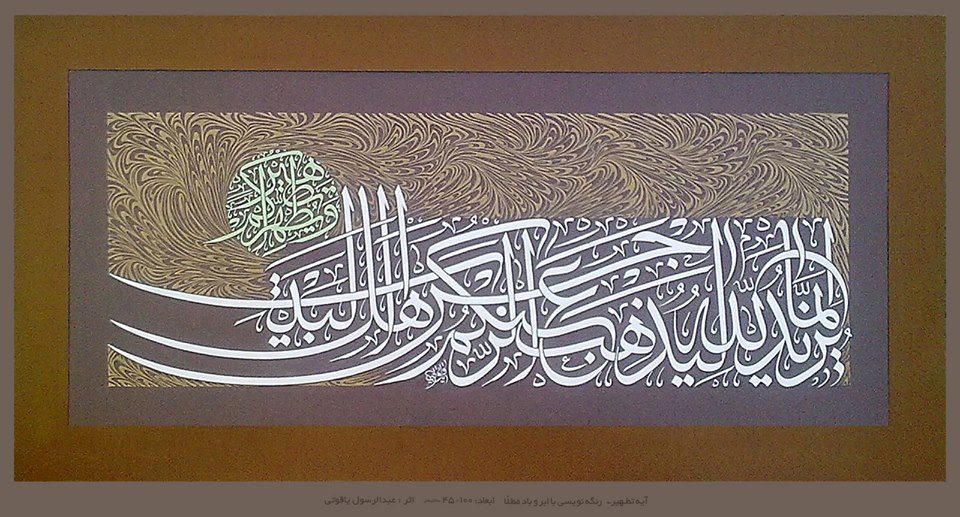 انما يريد الله ليذهب عنكم الرجس اهل البيت
و يطهركم تطهيرا
آیه تطهیر- رنگه نویسی با ابر و باد مطلّا ابعاد: ۱۰۰*۴۵ اثر : عبدالرسول یاقوتی